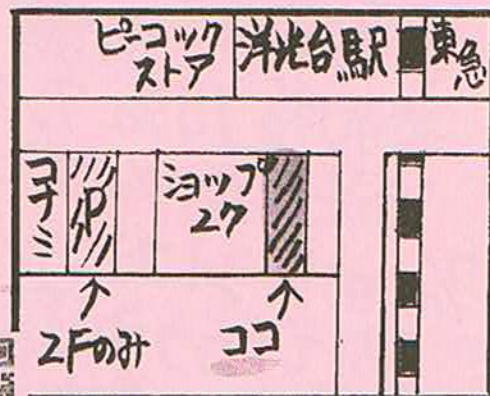 ピーコック
ストア
洋光台駅
東急
コナミ
P
ショップ
27
2Fのみ
ココ